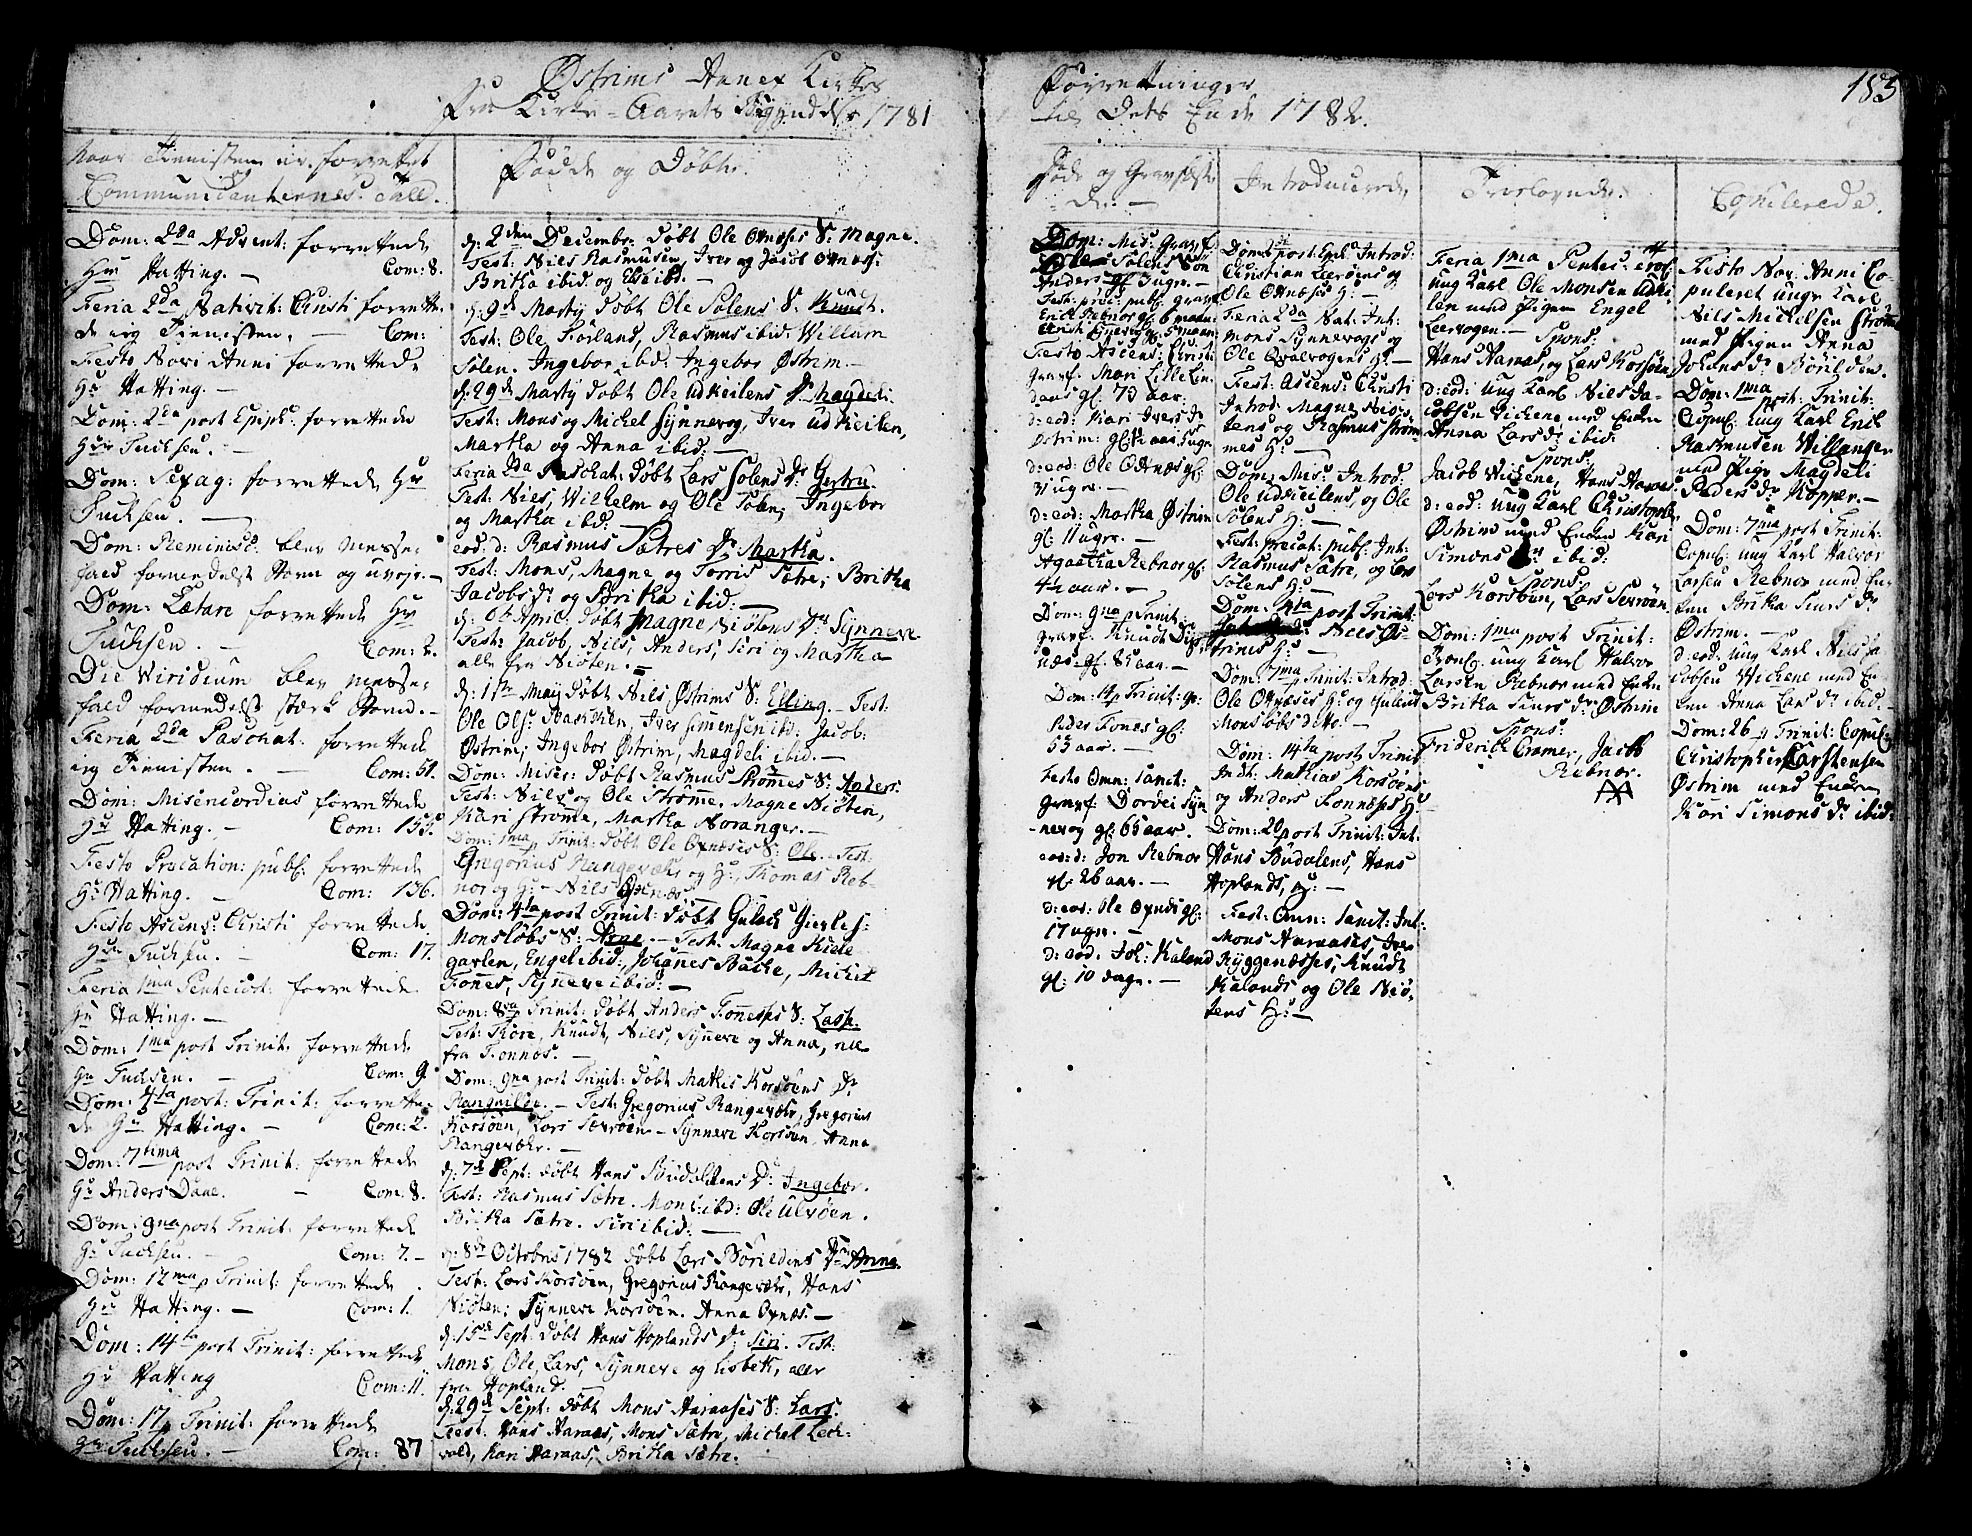 Østrims Annex Kirkes
Fra Kirke-Aarets Begyndelse 1781
Naar Tienisten er forrettet
Communicanternes Tall.
Dom: 2da Advent: forrettede
Hr Hatting. - Com: 8.
Feria 2da Nativit: Christi forrette-
de ieg Tienisten. Com:
Festo Novi Anni forrettede
Hr Hatting. -
Dom: 2da post Epiph: forrettede
Hr Tuchsen. -
Dom: Sexag: forrettede Hr
Tuchsen. -
Dom: Reminisc: blev Messe-
fald formedelst Storm og uvejr. -
Dom: Lætare forrettede Hr
Tuchsen. - Com: 2.
Die Viridium blev Messe-
fald formedelst stærk Storm. -
Feria 2da Paschat: forrettede
ieg Tienisten. - Com: 51.
Dom: Misericordias forrettede
Hr Hatting. - Com: 155.
Festo Precation: publ: forrettede
Hr Hatting. - Com: 136.
Festo Ascens: Christi forrettede
Hr Tuchsen. - Com: 17.
Feria 1ma Pentecost: forrettede
Hr Hatting. -
Dom: 1ma post Trinit: forrettede
Hr Tuchsen. - Com: 9.
Dom: 4ta post: Trinit: forrette-
de Hr Hatting. - Com: 2.
Dom: 7tima post Trinit: forrettede
Hr Anders Dane. - Com: 8.
Dom: 9na post Trinit: forrettede
Hr Tuchsen. - Com: 7. -
Dom: 12ma p Trinit: forrettede
Hr Hatting. - Com: 1.
Dom: 14ta post Trinit: forrettede
Hr Hatting Com: 11.
Dom: 17 p Trinit: forrettede
Hr Tuchsen. - Com: 87
Fødde og Døbte.
d: 2den Decembr: døbt Ole Otnæses S: Magne.
Test: Nils Rasmusen, Iver og Jacob Otnæs:
Britha ibid: og Els ibid: -
d: 9de Marty døbt Ole Solens S: Knut.
Test: Ole Førland, Rasmus ibid: Willum
Solen. Ingebor ibid: Ingebor Østrim. -
d: 29de Marty døbt Ole Udkeilens Dr Magdeli
Test: Mons og Michel Synnevog, Iver Udkeilen,
Martha og Anna ibid: -
Feria 2da Paschat: døbt Lars Solens Dr Gertru.
Test: Nils, Wilhelm og Ole Solen, Ingebor
og Martha ibid. -
eod: d: Rasmus Sætres Dr Martha.
Test: Mons, Magne og Torris Sætre; Britha
Jacobsdr og Britha ibid: -
Test: Jacob, Nils, Anders, Siri og Martha
alle fra Niøten. -
d: 1ste May døbt Nils Østrims S: Elling. - Test:
Ole Ols: Bakken, Iver Simensen ibd: Jacob:
Østrim; Ingebor Østrim, Magdeli ibid. -
Dom: Miser: døbt Rasmus Strømes S: Anders.
Test: Nils og Ole Strømme. Magne Niøten,
Kari Strøme, Martha Noranger. -
Dom: 1ma p Trinit: døbt Ole Oxnæses S: Ole. - Test:
Gregorius Rangevær og H:, Thomas Reb-
nor og H: - Nils Oxnæs. -
Dom: 4ta post Trinit: døbt Gulach Gierles:
Monsløbs S: Arne. - Test: Magne Kiele
garlen, Engel ibid:, Johanes Bache, Michel
Fones, Synneve ibid: -
Dom: 8va Trinit: døbt Anders Fonesses S: Lasse.
Test: Tore, Knudt, Nils, Synneve og Anna, alle
fra Fonnes. -
Dom: 9na post Trinit: døbt Mathis Korsøens Dr
Ranguilde. - Test: Gregorius Rangevær, Gregorius
Korsøen, Lars Sævrøen - Synneve Korsøen, Anna
Rangevær. -
d: 7de Sept: døbt Hans Budalens Dr Ingebor.
Test: Rasmus Sætre. Mons ibd: Ole Ulvøen.
Britha Sætre. Siri ibid: -
d: 8de Octobris 1782 døbt Lars Børildens Dr Anna
Test: Lars Korsøen, Gregorius Rangevær, Hans
Niøten; Synneve Korsøen. Anna Oxnæs. -
d: 15de Sept: døbt Hans Hoplands Dr Siri. Test:
Mons, Ole, Lars, Synneve og Lisbeth, alle
fra Hopland. -
d: 29de Sept: døbt Mons Haraases S: Lars.
Test: Hans Haraas, Mons Sætre, Michel Lech-
vold, Kari Haraas, Britha Sætre. -
Forretninger 183
til Dets Ende 1782.
Døde og Gravfæste-
de. -
Dom: Mis: Gravf.
Ole Solens Søn
Anders gl: Jugr. -
Test: prec: publ: gravf:
Festo Ascens: Christ:
Gravf. Mari Lille Lin-
daas gl. 73 aar. -
d: eod: Kari Iversdr
d: eod: Ole Otnæs gl:
31 ugr. -
d: eod: Martha Østrim
gl: 11 ugr. -
Agaatha Rebnor gl:
4½ aar. -
Dom: 9na p Trinit:
Dom: 14 p Trinit: gr:
Peder Fones gl:
53 aar. -
Festo Omn: Sanct:
gravf: Dordei Syn
nevog gl: 65 aar. -
eod: d: Jon Rebnor
gl: 26 aar. -
d: eod: Ole Oxnæs gl:
17 ugr. -
d: eod. Joh: Kaland
gl: 10 dage. -
Introducerede
Dom: 2da post Eph: Introd:
Christian Leerøens og
Ole Otnæses H: -
Feria 2da Nat: Int:
mons Synnevogs og
Ole Qvalvogens H: -
Fest: Ascens: Christi
Introd. Magne Niø-
tens og Rasmus Strøm
mes H: -
Dom: Mis: Introd:
Ole Udkeilens, og Ole
Solens H: -
Fest: Precat: publ: Int:
Rasmus Sætre, og Lars
Solens H: -
Dom: 4ta post Trinit:
Nils Øs-
trims H: -
Dom: 7ma Trinit: Introd:
Ole Otnæses H: og Gulach
Monsløbs ditto. -
Dom: 14ta post Trinit
Indt: Mathias Korsøens
og Anders Fonneses H: -
Dom: 20 post Trinit: Int:
Hans Budalens, Hans
Hoplands, H: -
Fest: Omn: Sanct: Int:
Mons Haraases, Iver
Ryggenæsses, Knudt
Kalands og Ole Niø-
tens H: -
Troelovede.
Feria 1ma Pentec: trol:
ung Karl Ole Monsen Udkei-
len med Pigen Engel
Leervogen. - Spons:
Hans Namas, og Lars Korsøen
d: eod: ung Karl Nils Ja-
cobsen Wichene med Enken
Anna Larsdr ibid.
Spons:
Jacob Wichene, Hans Haraas.
d: eod: ung Karl Christopher
Østrim med Enken Kari
Simonsdr ibid:
Spons:
Lars Korsøen, Lars Sevrøen
Dom: 1ma post Trinit:
Trol: ung Karl Halvor
Larsen Rebnor med Enken
Britha Siursdr Østrim
Spons:
Friderich Cramer, Jacob
Rebnor.
Copulerede.
Festo Nov: Anni Co-
puleret unge Karl
Nils Michelsen Strømme
med Pigen Anna
Johansdr Børilden.
Dom: 1ma post: Trinit:
Copul: ung Karl Erik
Rasmusen Willanger
med Pige Magdeli
Pedersdr Kopper. -
Dom: 7ma post Trinit:
Copul: ung Karl Halvor
Larsen Rebnor med En-
ken Britha Siursdr
Østrim. -
d: eod: ung Karl Nils Ja
cobsen Wichene med En-
ken Anna Larsdr ibid. -
Dom: 26 p Trinit: Copul:
Christopher Carstensen
Østrim med Enken
Kari Simonsdr ibid: